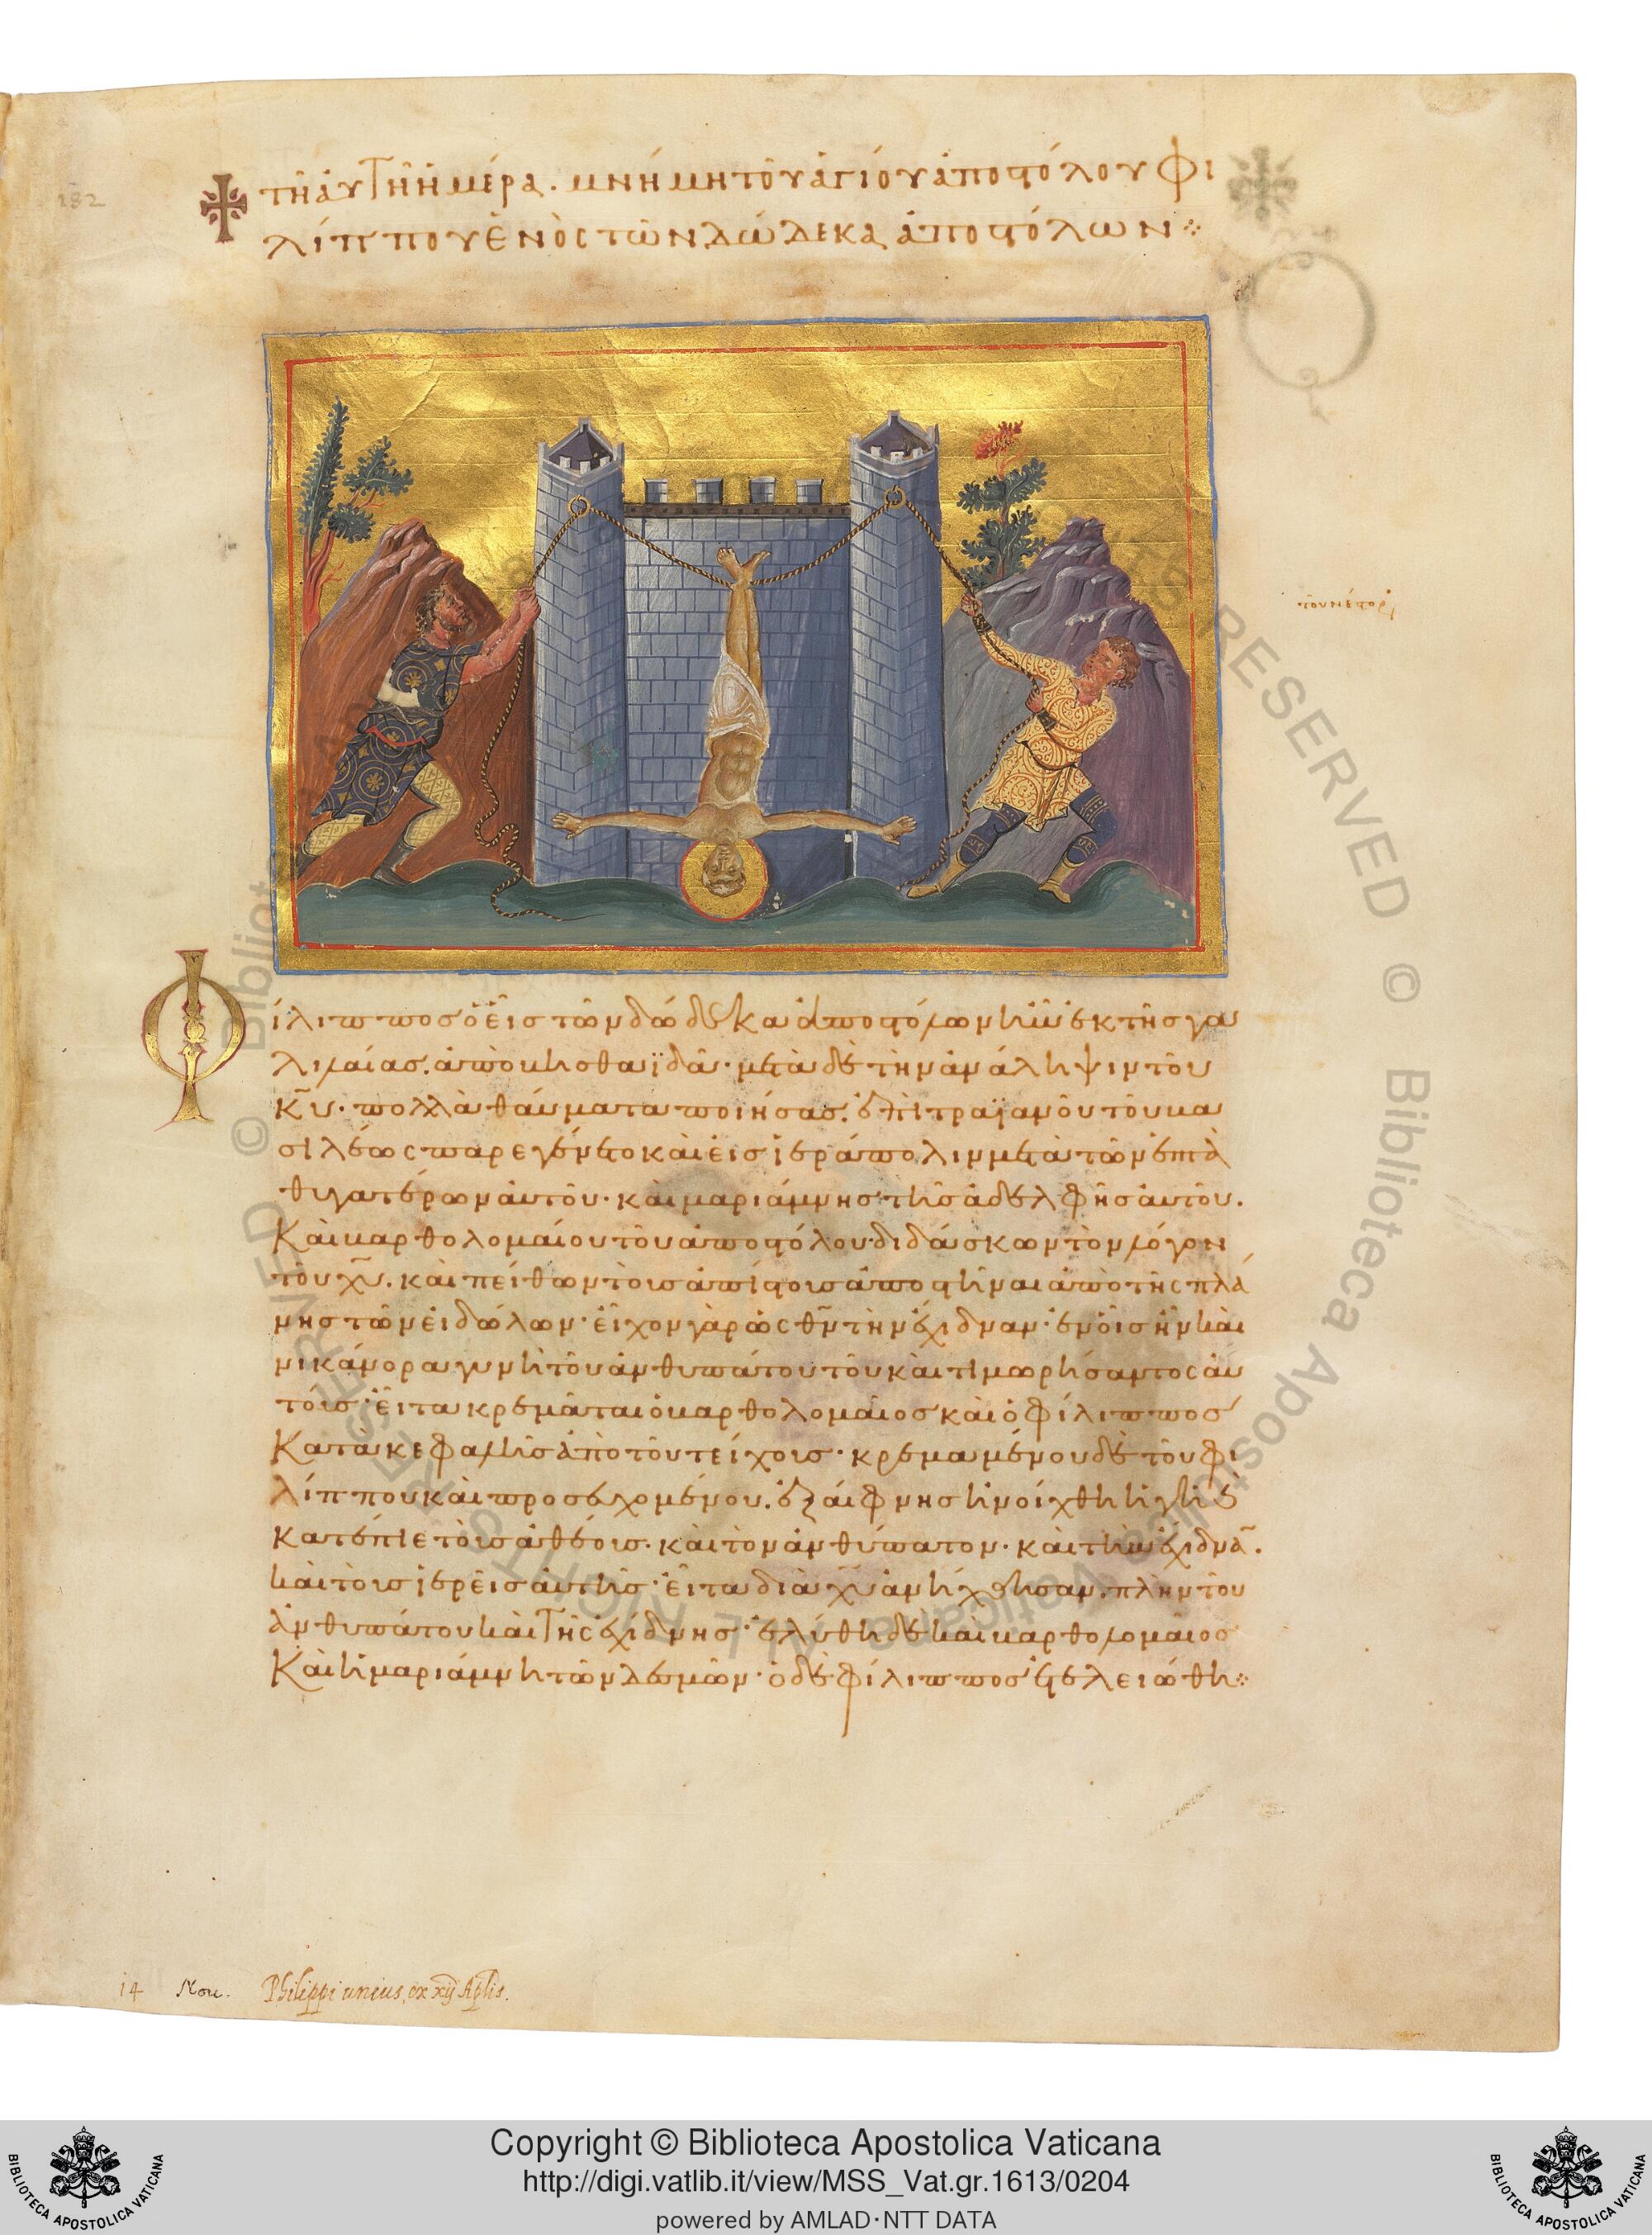 182
τῆ αὐτῆ ἡμέρα. μνήμη τοῦ ἁγίου ἀποστόλου Φι
λίππου ἑνὸς τῶν δώδεκα ἀποστόλων
Φίλιππος ὁ εἷς τῶν δώδεκα ἀποστόλων ἦν ἐκ τῆς γα
λιλαίας. ἀπὸ βηθσαϊδά· μετὰ δὲ τὴν ἀνάληψιν τοῦ
κ̅υ̅. πολλὰ θαύματα ποιήσας. ἐπὶ τραϊανοῦ τοῦ βα
σιλέως παρεγένετο καὶ εἰς ἱεράπολιν μετὰ τῶν ἑπτὰ
θυγατέρων αὐτοῦ· καὶ μαριάμνης τῆς ἀδελφῆς αὐτοῦ.
Καὶ βαρθολομαίου τοῦ ἀποστόλου διδάσκων τὸν λόγον
τοῦ χ̅υ̅. καὶ πείθων τοὺς ἀπίστους ἀποστῆναι ἀπὸ τῆς πλά
νης τῶν εἰδώλων· εἶχον γὰρ ὡς θ̅ν̅ τὴν ἔχιδναν· ἐν οἷς ἦν καὶ
νικάνορα γυνὴ τοῦ ἀνθυπάτου τοῦ καὶ τιμωρήσαντος αὐ
τοῖς· εἶτα κρεμᾶται ὁ βαρθολομαῖος καὶ ὁ φίλιππος
Κατὰ κεφαλῆς ἀπὸ τοῦ τείχους· κρεμαμένου δὲ τοῦ φι
λίππου καὶ προσευχομένου. ἐξαίφνης ἠνοίχθη ἡ γῆ καὶ
κατέπιε τοὺς ἀθέους· καὶ τὸν ἀνθύπατον· καὶ τὴν ἔχιδνα̅.
καὶ τοὺς ἱερεῖς αὐτῆς· εἶτα διὰ χ̅υ̅ ἀνήχθησαν. πλὴν τοῦ
ἀνθυπάτου καὶ τῆς ἐχίδνης· ἐλύθη δὲ καὶ βαρθολομαῖος
Καὶ ἡ μαριάμνη τῶν δεσμῶν· ὁ δὲ φίλιππος ἐτελειώθη
14 Nou. Philippi unius ex xij Aplis.
© Biblioteca Apostolica Vaticana ALL RIGHTS RESERVED
Copyright © Biblioteca Apostolica Vaticana
http://digi.vatlib.it/view/MSS_Vat.gr.1613/0204
powered by AMLAD·NTT DATA
BIBLIOTECA APOSTOLICA VATICANA
BIBLIOTECA APOSTOLICA VATICANA